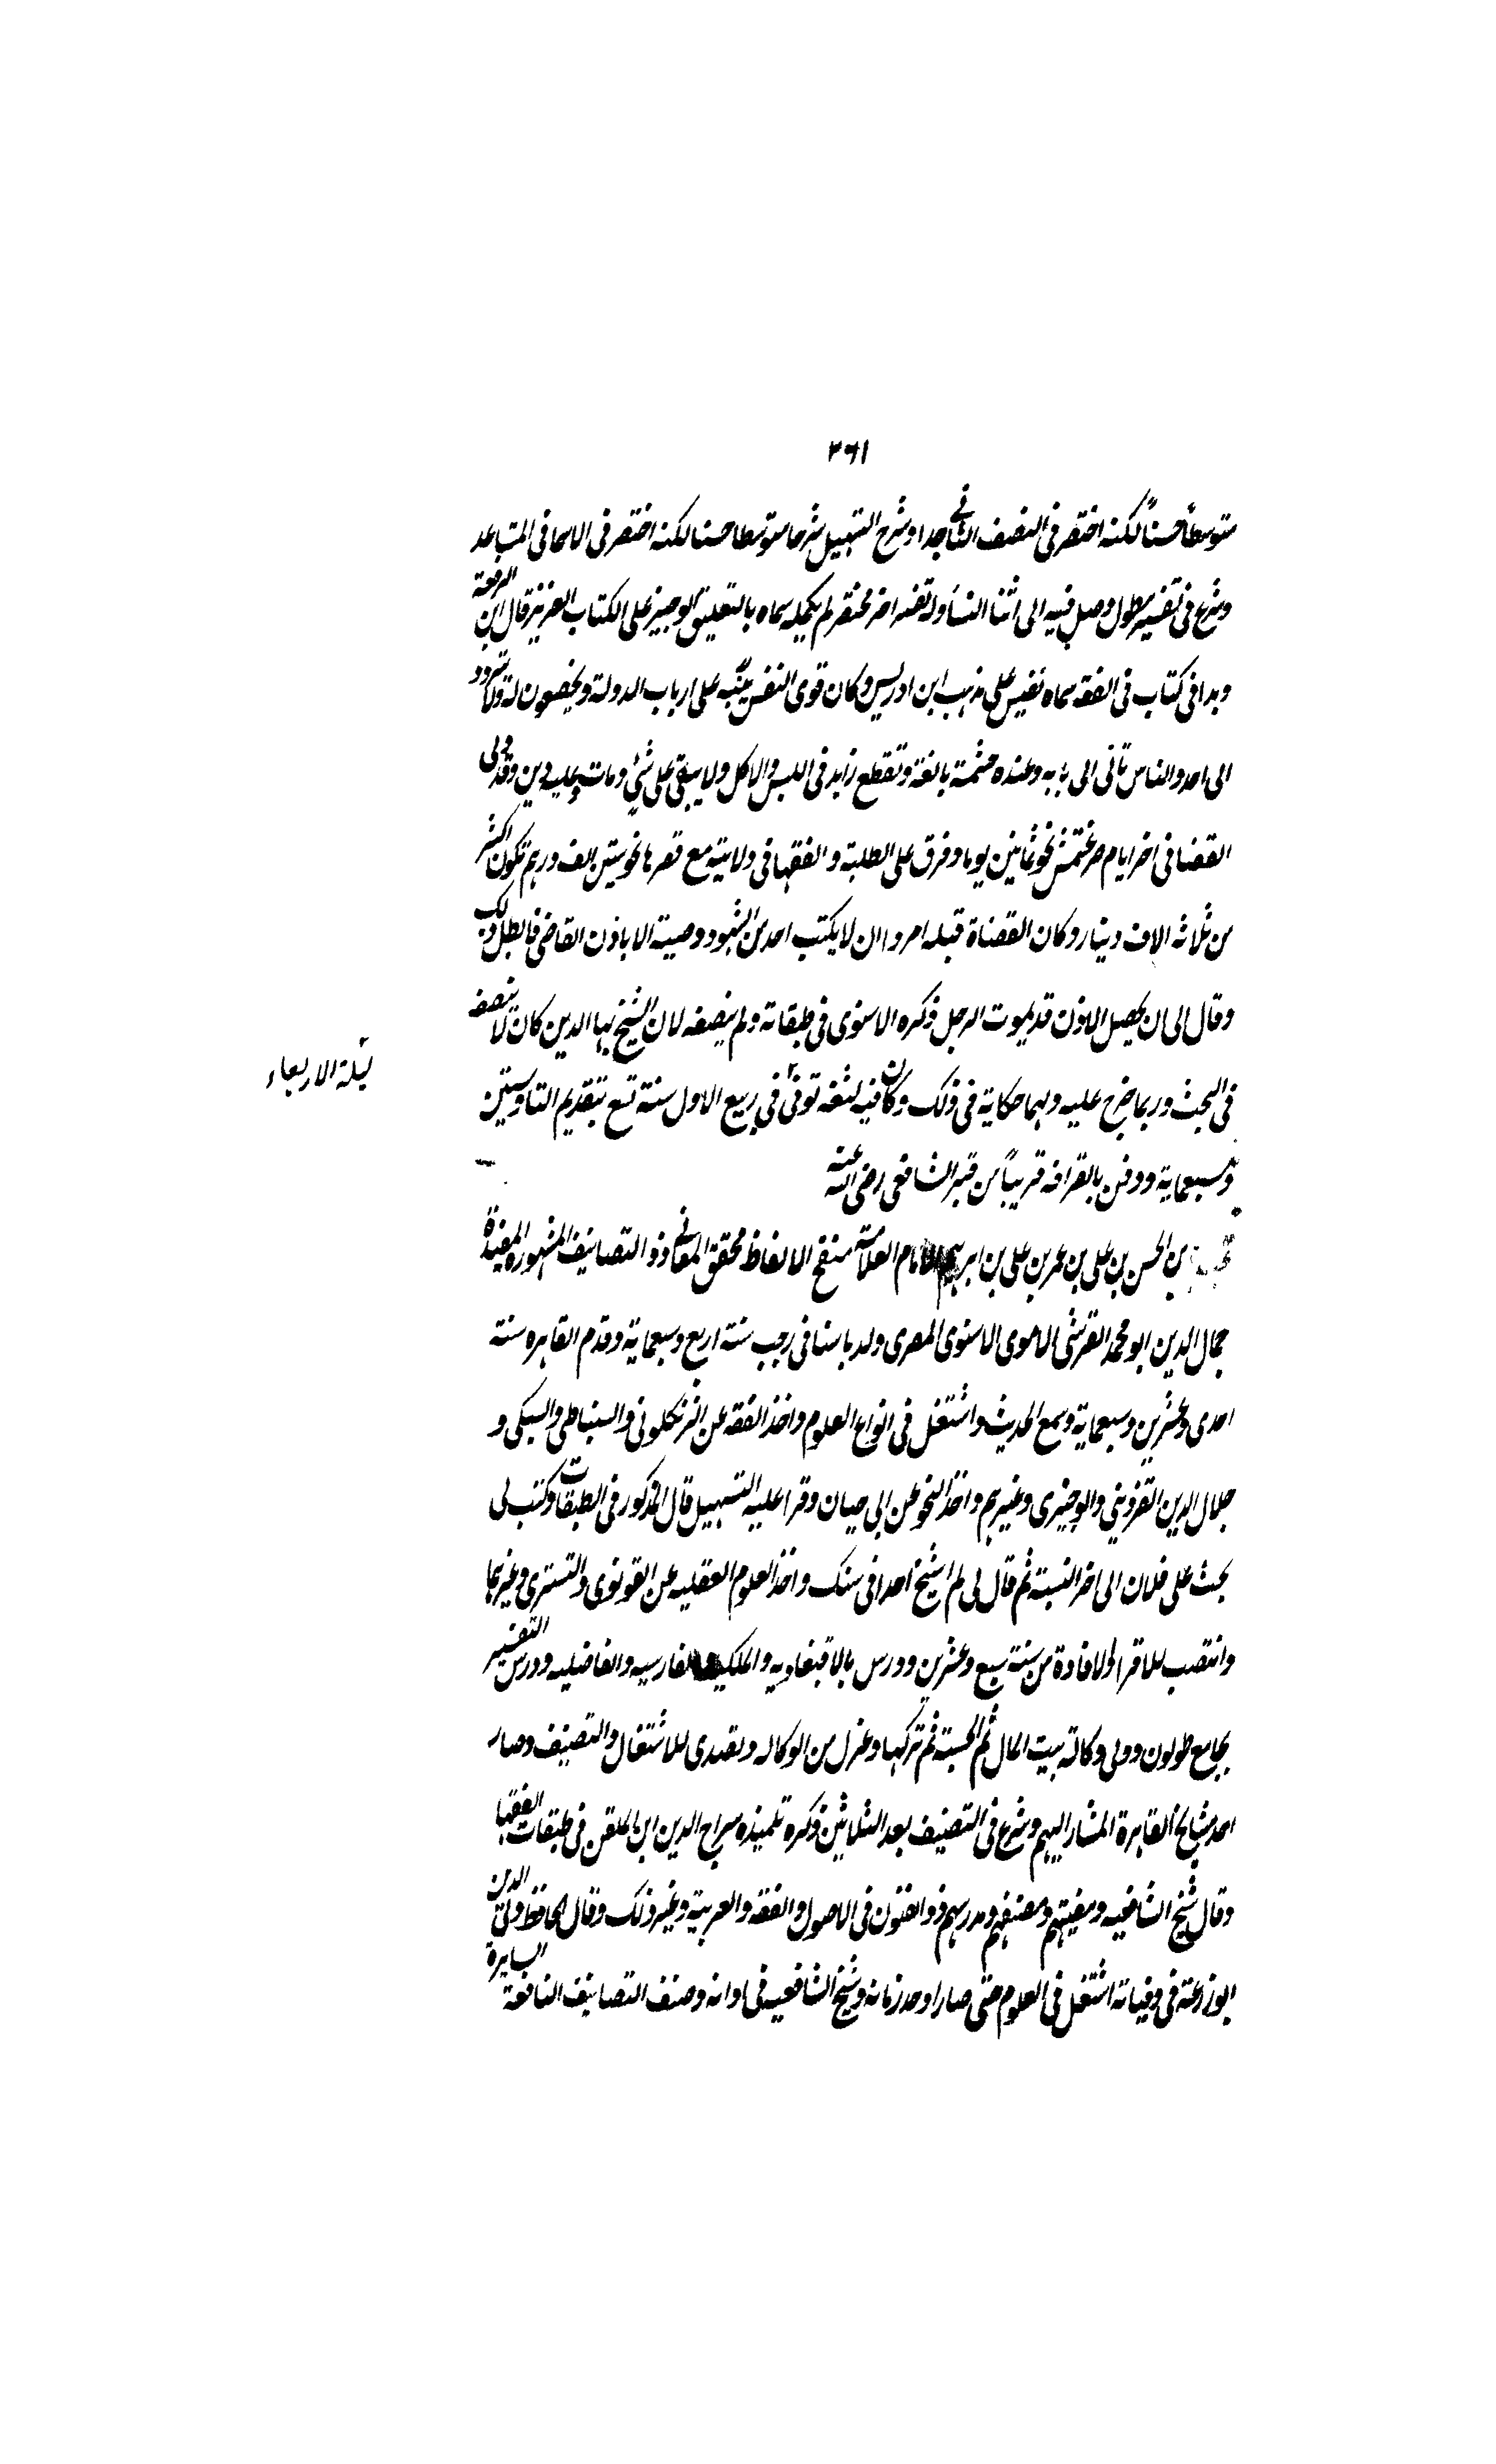 ٣٦١
متوسطاً حسناً لكنه اختصر فى النصف الثانى جدا وشرح التسهيل شرحا متوسطا حسنا لكنه اختصر فى الاسماء فى المساعد
وشرع فى تفسير مطول وصل فيه الى اثنا النساء وله تفسير اخر مختصر لم يكمله سماه بالتعليق الوجيز على الكتاب العزيز قال ابن الرفعة
وبدا فى كتاب فى الفقه سماه نفيس على مذهب ابن ادريس وكان قوى النفس يتيه على ارباب الدولة ويخضعون له ولا يتردد
الى احد والناس تاتى الى بابه وعنده حشمة بالغة وتقطع زايد فى اللبس والاكل ولا يبقى على شئ ومات وعليه دين وقد ولى
القضا فى اخر ايام صرغتمش نحو ثمانين يوما وفرق على الطلبة والفقها فى ولايته مع قصرها نحو ستين الف درهم تكون اكثر
من ثلاثه الاف دينار وكان القضاة قبله امروا ان لا يكتب احد من الشهود وصية الا باذن القاضى فابطل ذلك
وقال الى ان يحصل الاذن قد يموت الرجل ذكره الاسنوى فى طبقاته ولم ينصفه لان الشيخ بها الدين كان لا ينصفه
فى البحث وربما خرج عليه ولهما حكاية فى ذلك وكان فيه لثغه توفى فى ربيع الاول سنة تسع بتقديم التا وستين
ليلة الاربعاء
وسبعماية ودفن بالقرافه قريباً من قبر الشافعى رضى الله عنه
بن الحسن بن على بن عمر بن على بن ابرهيم الامام العلامة منقح الالفاظ محقق المعانى ذو التصانيف المشهوره المفيدة
جمال الدين ابو محمد القرشى الاموى الاسنوى المصرى ولد باسنا فى رجب سنة اربع وسبعماية وقدم القاهره سنة
احدى وعشرين وسبعماية وسمع الحديث واشتغل فى انواع العلوم واخذ الفقه عن الزنكلونى والسنباطى والسبكى و
جلال الدين القزوينى والوجيزى وغيرهم واخذ النحو عن ابى حيان وقرا عليه التسهيل قال المذكور فى الطبقات وكتب لى
بحث على فلان الى اخر النسبة ثم قال لى لم اشيخ احدا فى سنك واخذ العلوم العقليه عن القونوى والتسترى وغيرهما
وانتصب للاقرا والافادة من سنة سبع وعشرين ودرس بالاقبغاويه والملكيه والفارسيه والفاضليه ودرس التفسير
بجامع طولون وولى وكالة بيت المال ثم الحسبة ثم تركها وعزل من الوكاله وتصدى للاشتغال والتصنيف وصار
احد مشايخ القاهرة المشار اليهم وشرع فى التصنيف بعد الثلاثين ذكره تلميذه سراج الدين ابن الملقن فى طبقات الفقها
وقال شيخ الشافعيه ومفتيهم ومصنفهم ومدرسهم ذو الفنون فى الاصول والفقه والعربية وغير ذلك وقال الحافظ ولى الدين
ابو زرعة فى وفياته اشتغل فى العلوم حتى صار اوحد زمانه وشيخ الشافعيه فى اوانه وصنف التصانيف النافعة السايرة